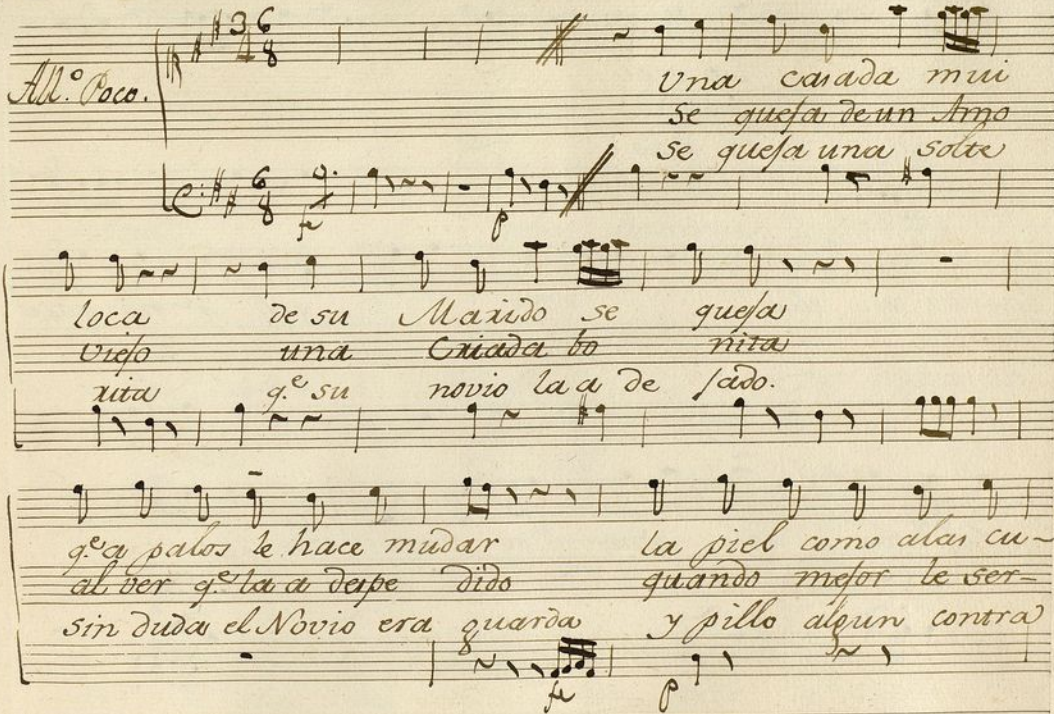 All.º Poco.
3 6
4 8
Una casada mui
Se queja de un Amo
Se queja una solte
6
8
fe p
loca de su Marido se queja
viejo una Criada bo nita
rita q.e su novio la a de jado.
q.e a palos le hace mudar la piel como a las cu-
al ver q.e la a despe dido quando mejor le ser-
sin duda el Novio era guarda y pillo algun contra
fe p